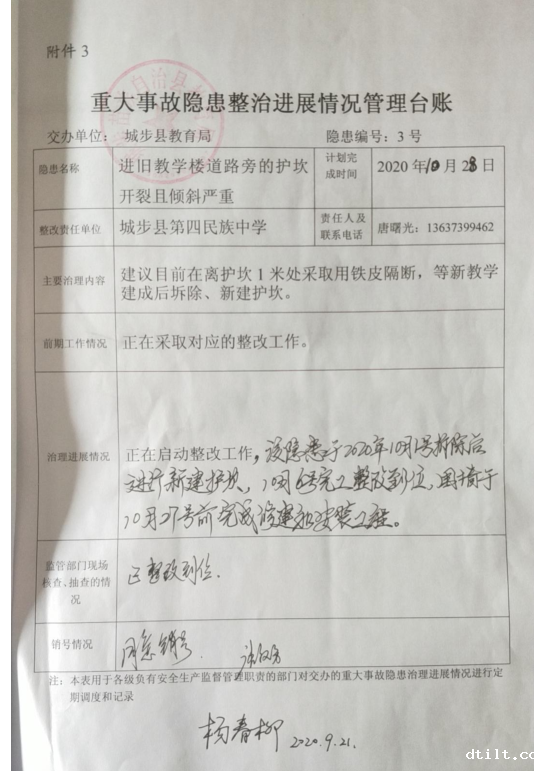 附件 3
重大事故隐患整治进展情况管理台账
交办单位： 城步县教育局 隐患编号：3 号
隐患名称
进旧教学楼道路旁的护坎
开裂且倾斜严重
计划完
成时间
2020 年10 月 28 日
整改责任单位
城步县第四民族中学
责任人及
联系电话
唐曙光：13637399462
主要治理内容
建议目前在离护坎 1 米处采取用铁皮隔断，等新教学
建成后拆除、新建护坎。
前期工作情况
正在采取对应的整改工作。
治理进展情况
正在启动整改工作，该隐患于2020年10月1号拆除后
进行新建护坎，10月6号完工整改到位，围于
10月27号前完成修建和安装工程。
监管部门现场
核查、抽查的情
况
已整改到位.
销号情况
同意销号.
注：本表用于各级负有安全生产监督管理职责的部门对交办的重大事故隐患治理进展情况进行定
期调度和记录
杨春柳 2020.9.21.
dtilt.co